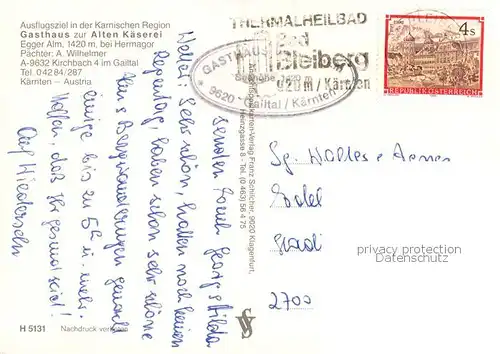 Ausflugsziel in der Karnischen Region
Gasthaus zur Alten Käserei
Egger Alm, 1420 m, bei Hermagor
Pächter: A. Wilhelmer
A-9632 Kirchbach 4 im Gailtal
Tel. 04284/287
Kärnten – Austria
THERMALHEILBAD
Bad
Bleiberg
920 m / Kärnten
GASTHAUS
Seehöhe 1420 m
9620 · Gailtal / Kärnten
4 S
REPUBLIK ÖSTERREICH
Hallo! Sehr schön, hatten noch keinen
Regentag, haben schon sehr schöne
Bergwanderungen gemacht
einige bis zu 5h u. mehr.
Hoffen, daß Ihr gesund seid!
Auf Wiedersehn
senden Euch Georg + Hilda
Franz Schilcher, 9020 Klagenfurt,
Heinzgasse 8 - Tel. (0 463) 56 4 75
2700
privacy protection
Datenschutz
H 5131
Nachdruck verboten